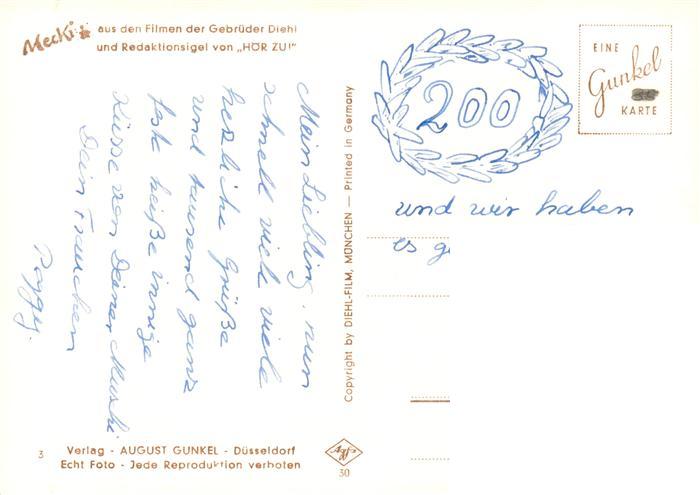 Mecki
aus den Filmen der Gebrüder Diehl
und Redaktionsigel von „HÖR ZU!"
Mein Liebling, nun
schnell viel viele
herzliche Grüße
und tausend ganz
feste heiße innige
Küsse von Deiner Muschi
Dein Frauchen
Peggy.
Copyright by DIEHL-FILM, MÜNCHEN — Printed in Germany
200
EINE
Gunkel
KARTE
und wir haben
es
3
Verlag - AUGUST GUNKEL - Düsseldorf
Echt Foto - Jede Reproduktion verboten
Agfa
30